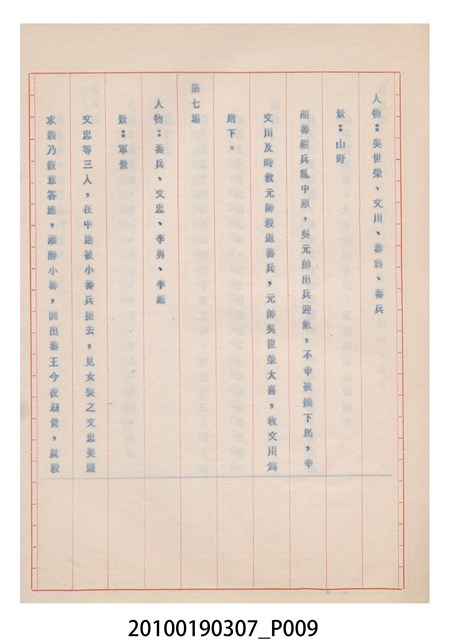 人物：吳世榮、文川、番爵、番兵
景：山野
番兵亂中原，吳元帥出兵迎敵，不幸被擒下馬，幸
文川及時救元帥殺退番兵，元帥吳世榮大喜，收文川為
麾下。
第七場
人物：番兵、文忠、李勇、李
景：軍營
文忠等三人，在中途被小番兵捉去，見女裝之文忠美圖
求親乃假意答應，灌醉小番，問出番王今夜刧營，就殺
20100190307_P009